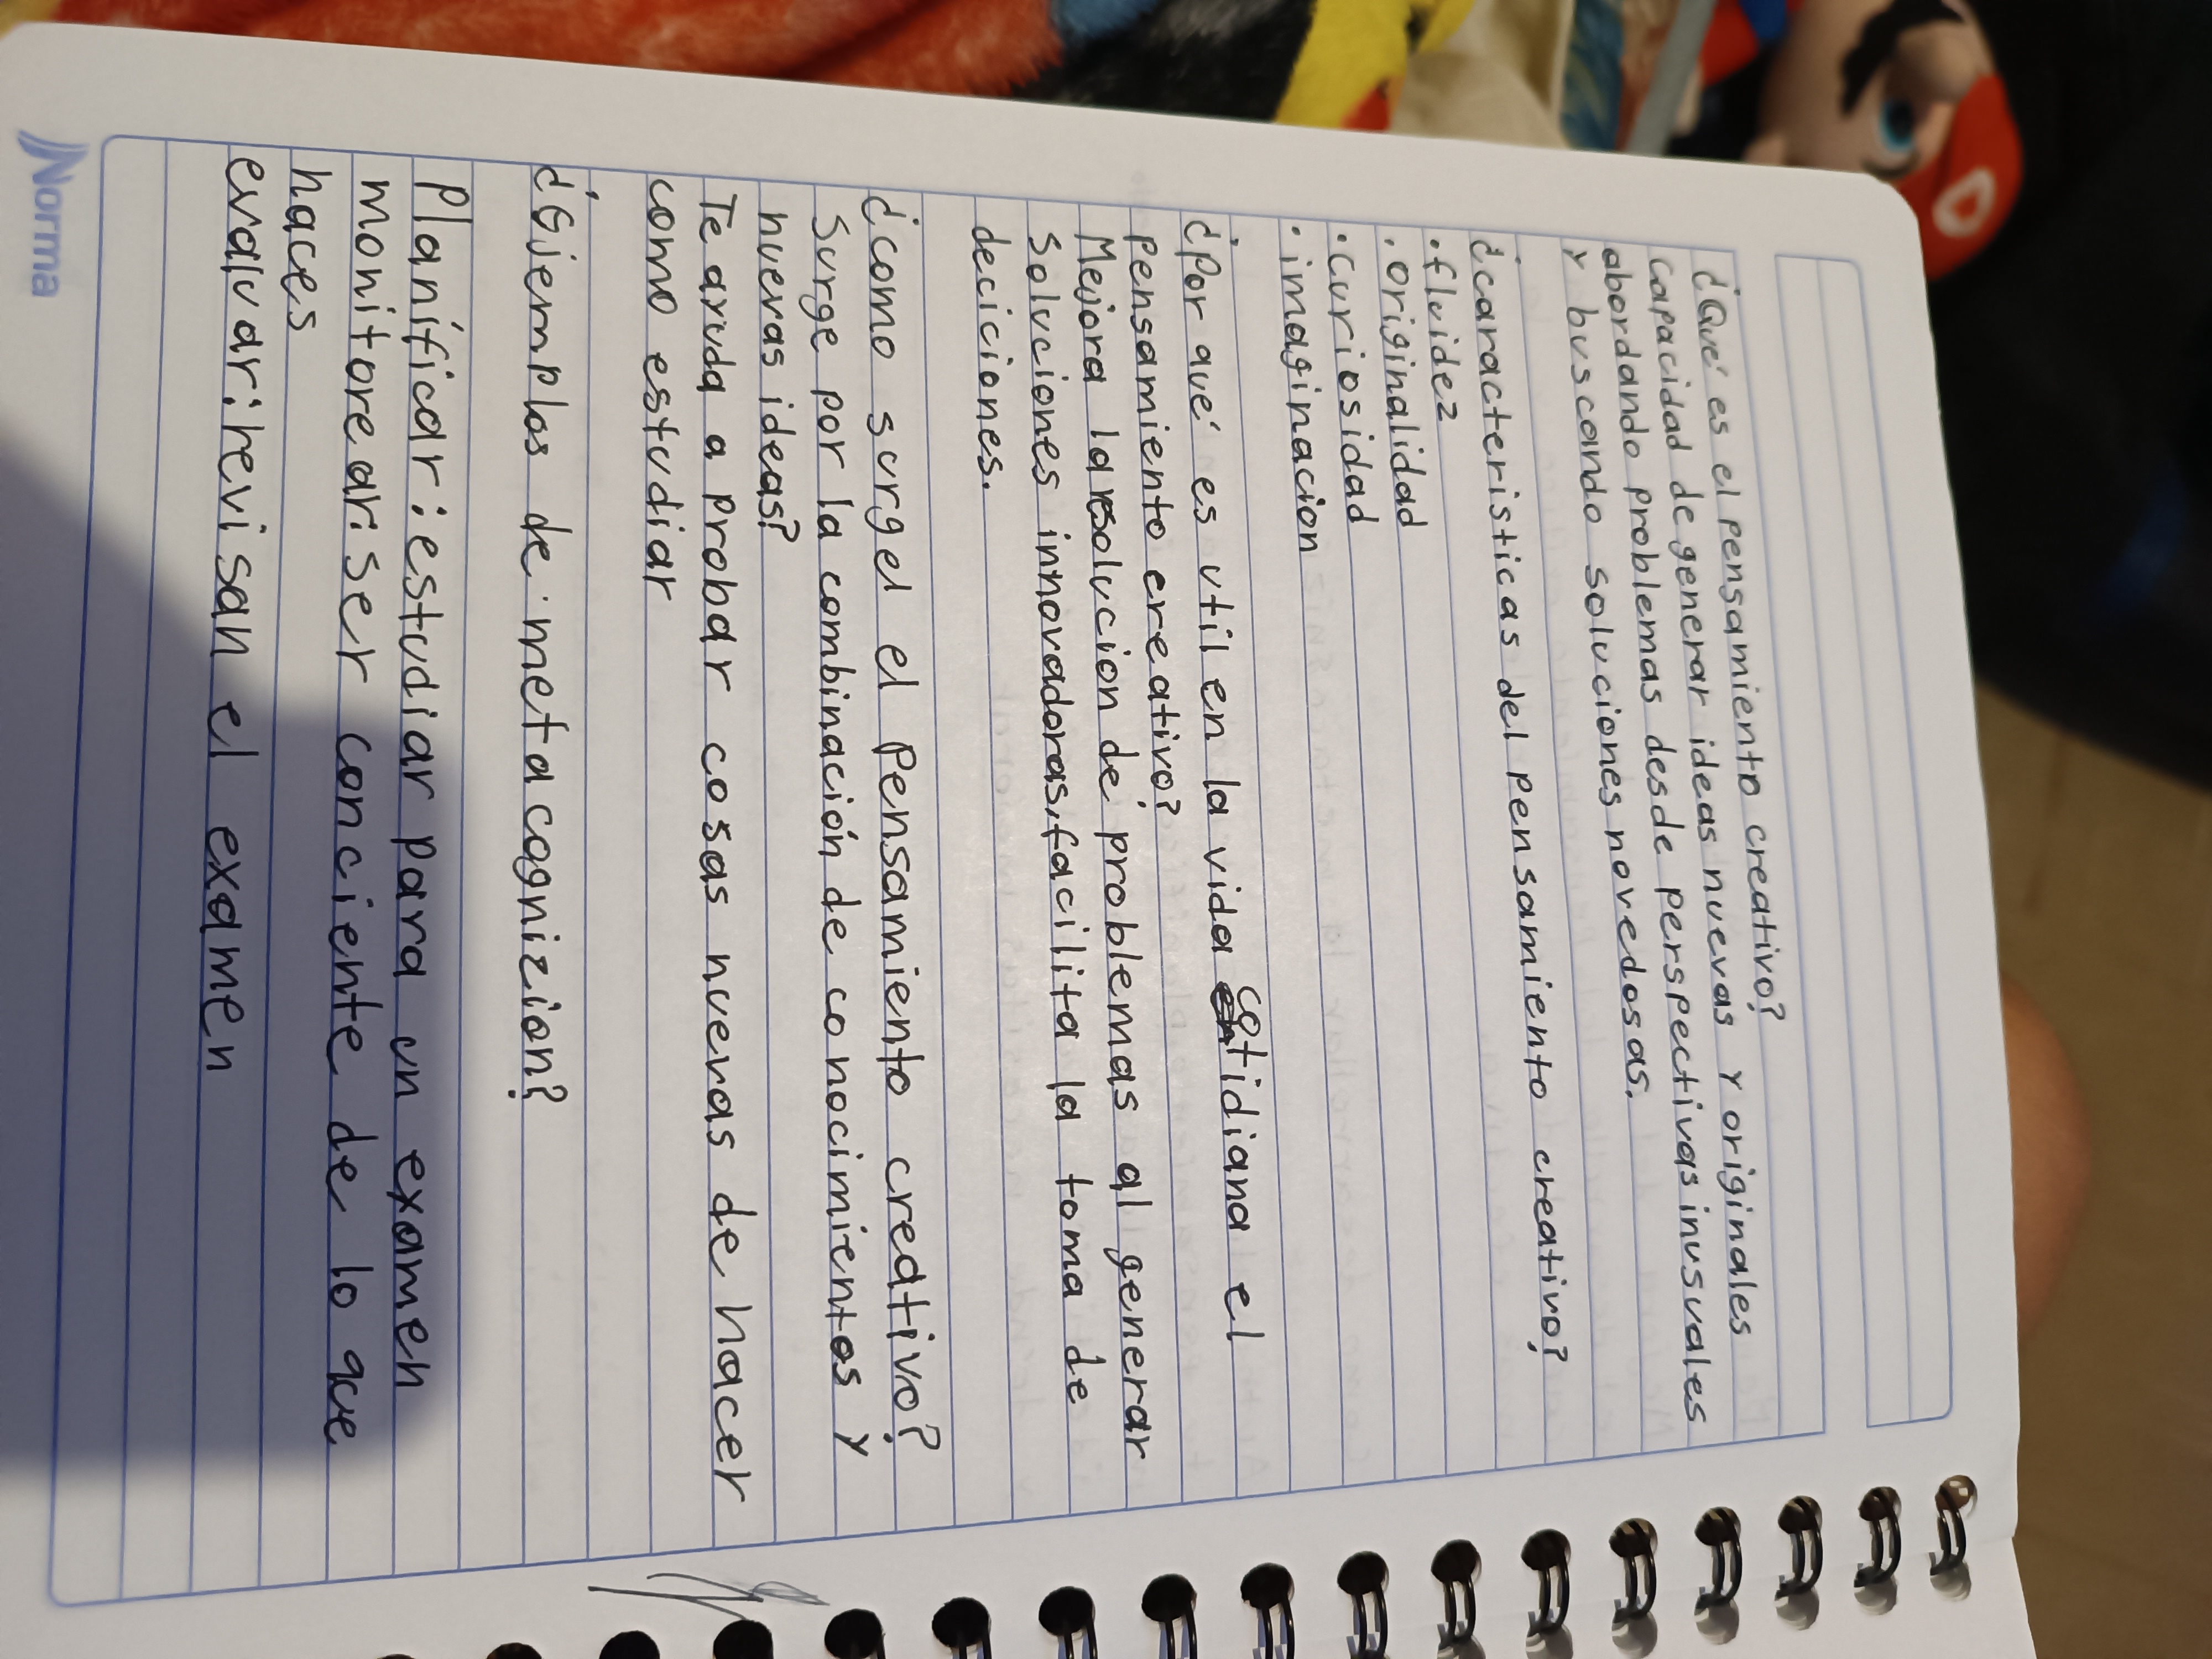 ¿Qué es el pensamiento creativo?
Capacidad de generar ideas nuevas y originales
abordando problemas desde perspectivas inusuales
y buscando soluciones novedosas.
¿caracteristicas del pensamiento creativo?
. fluidez
. originalidad
. curiosidad
. imaginacion
¿por qué es util en la vida cotidiana el
pensamiento creativo?
Mejora la resolucion de problemas al generar
soluciones innovadoras, facilita la toma de
deciciones.
¿como surgel el pensamiento creativo?
Surge por la combinación de conocimientos y
nuevas ideas?
Te ayuda a probar cosas nuevas de hacer
como estudiar
¿Ejemplos de metacognizion?
Planíficar: estudiar para un examen
monitorear: ser conciente de lo que
haces
evaluar: revisan el examen
Norma